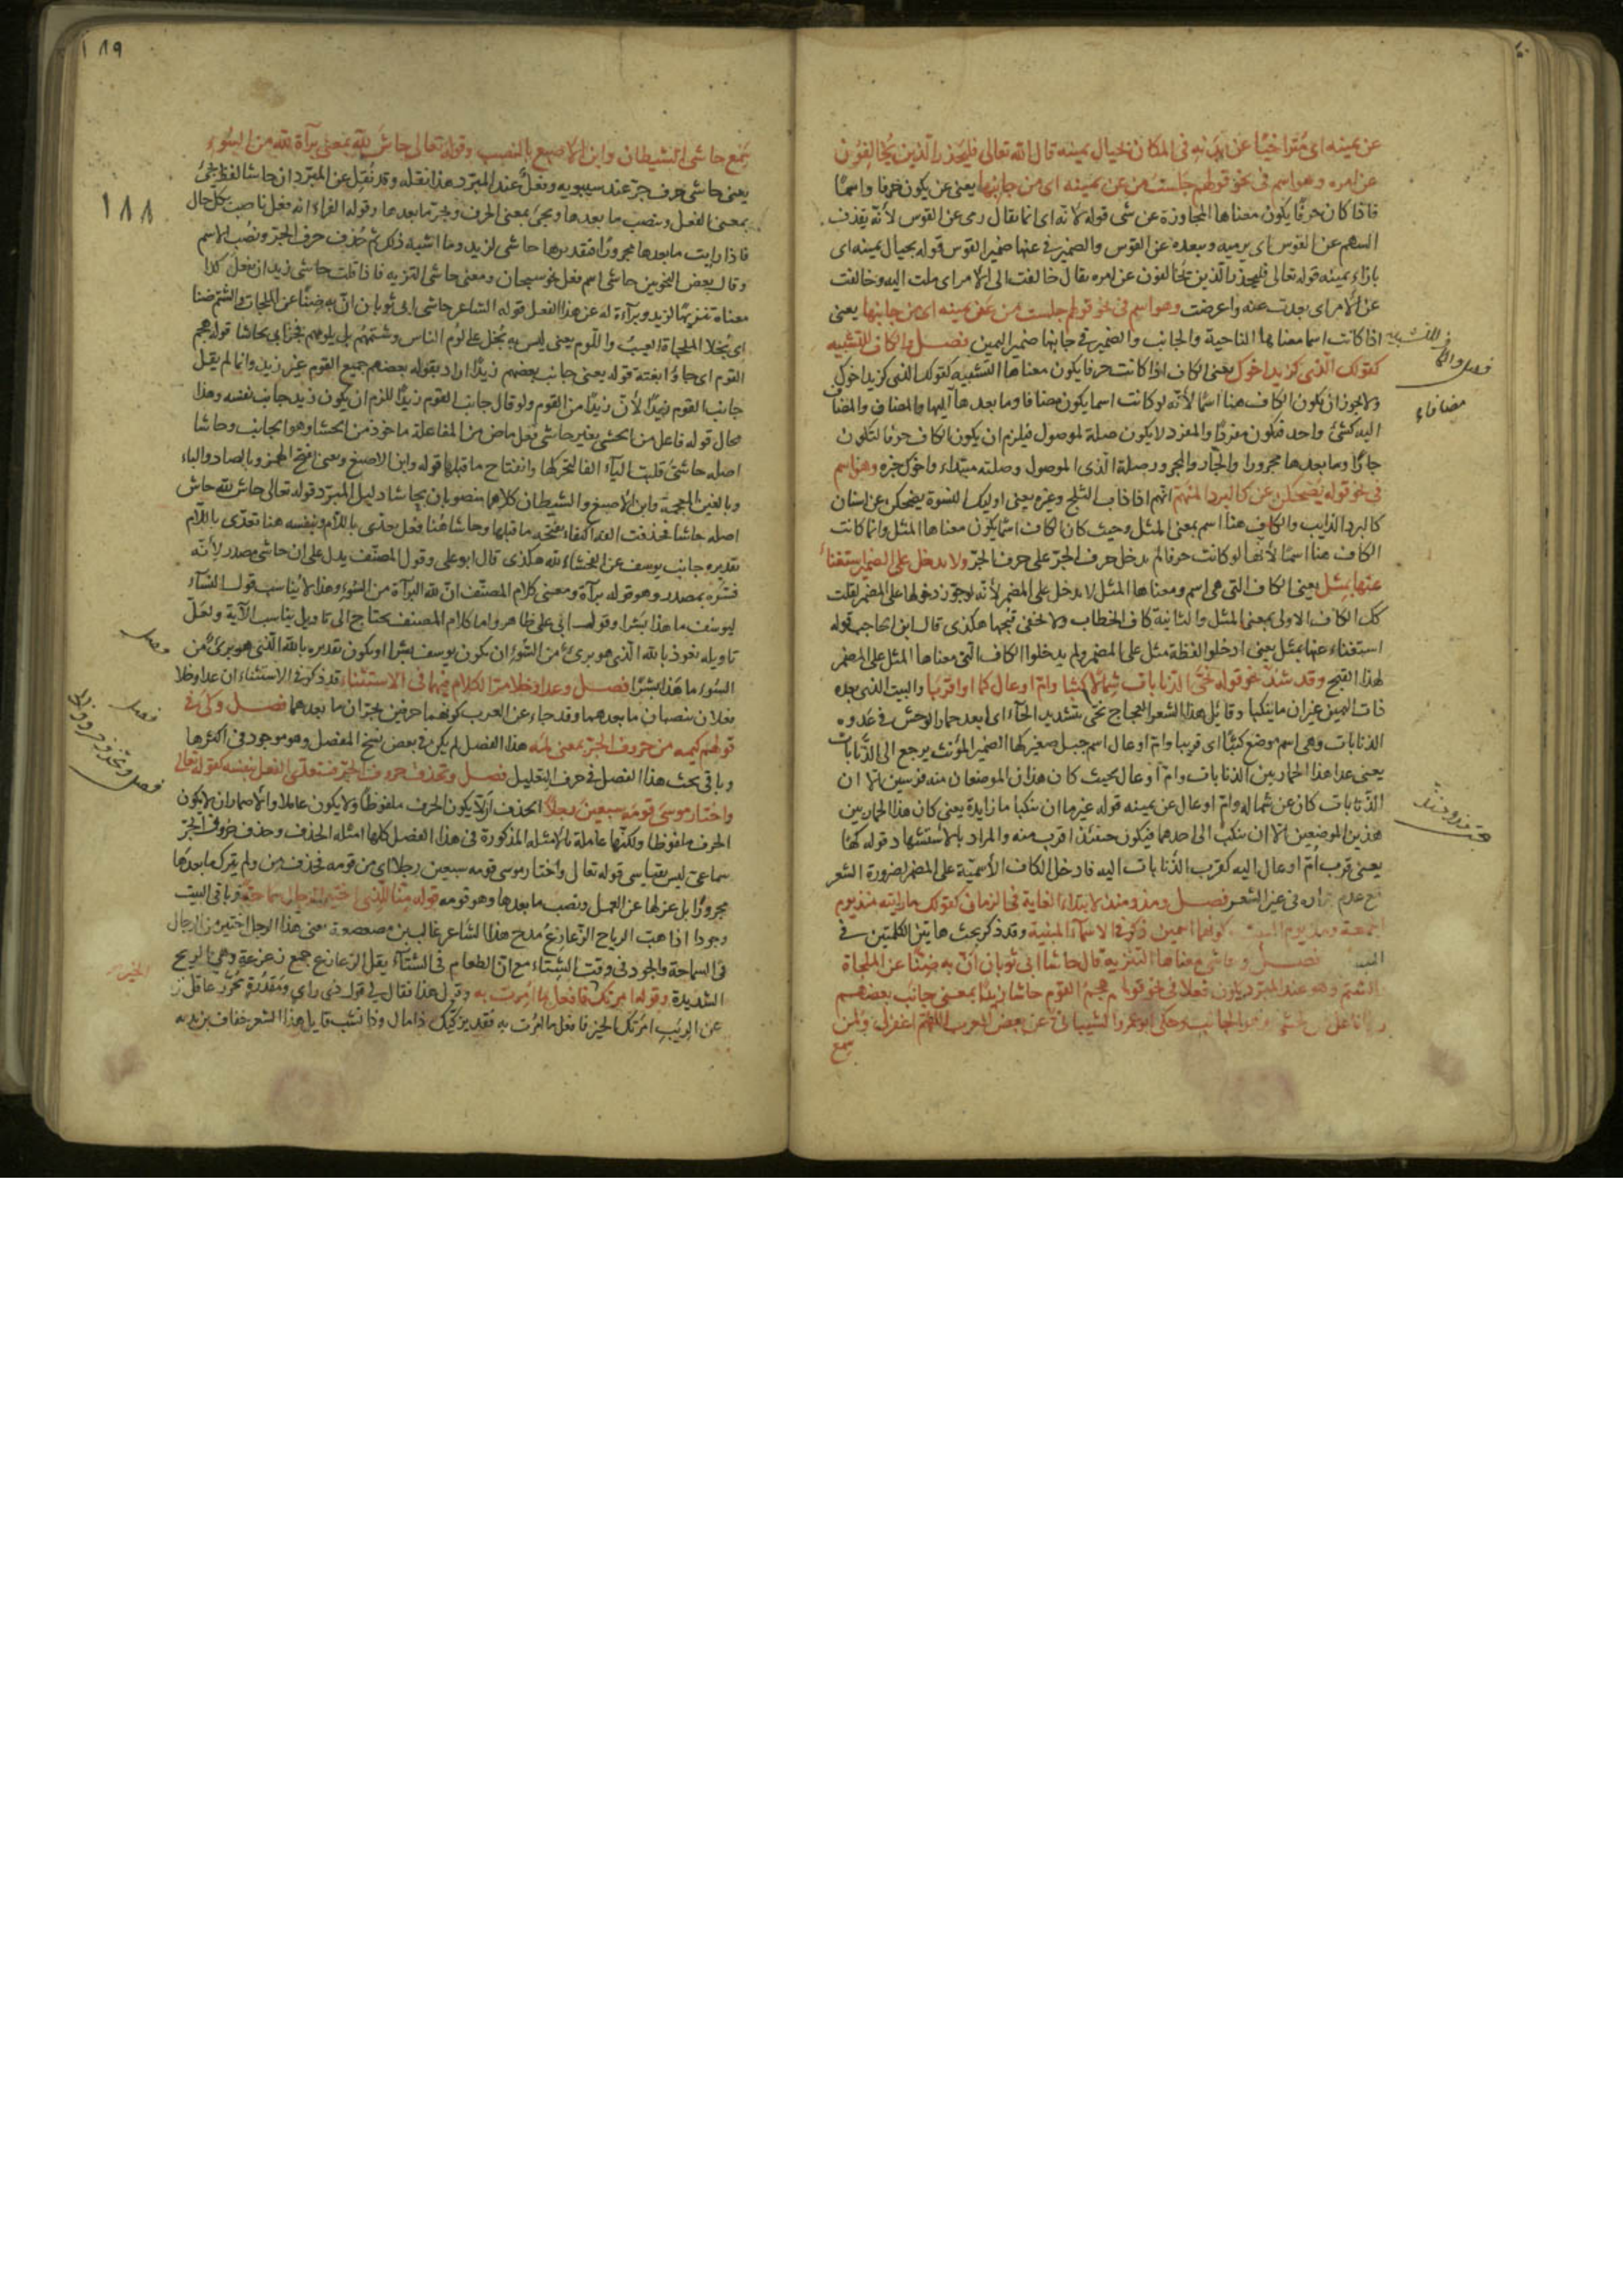 عن يمينه اى متراخيًا عن بدنه فى المكان بحيال يمينه قال الله تعالى فليحذر الّذين يخالفون
عن امره وهو اسم فى نحو قولهم جلست من عن يمينه اى من جانبها يعنى عن يكون حرفا واسمًا
فاذا كان حرفًا يكون معناها المجاوزة عن شى قوله لانّه اى انما يقال رمى عن القوس لأنّه يقذف
السهم عن القوس اى يرميه ويبعده عن القوس والضمير فى عنها ضمير القوس قوله بحيال يمينه اى
بازاء يمينه قوله تعالى فليحذر الّذين يخالفون عن امره يقال خالفت الى الامر اى ملت اليه وخالفت
عن الأمر اى بعدت عنه واعرضت وهو اسم فى نحو قولهم جلست من عن يمينه اى من جانبها يعنى
اذا كانت اسما معناها الناحية والجانب والضمير فى جانبها ضمير اليمين فصل والكاف للتشبيه
كقولك الّذى كزيد اخوك يعنى الكاف اذا كانت حرفا يكون معناها التشبيه كقولك الذى كزيد اخوك
ولا يجوز ان يكون الكاف هنا اسمًا لأنّه لو كانت اسما يكون مضافا وما بعدها اليها والمضاف والمضاف
اليه كشئ واحد فيكون مفردًا والمفرد لا يكون صلة لموصول فيلزم ان يكون الكاف حرفا لتكون
جارًا وما بعدها مجرورا والجّار والمجرور صلة الّذى الموصول وصلته مبتداء واخوك خبره وهو اسم
فى نحو قوله يضحكن عن كالبرد المنهم انهم اذا ذاب الثلج وغيره يعنى اوليك النسوة يضحكن عن اسنان
كالبرد الذايب والكاف هنا اسم بمعنى المثل وحيث كان الكاف اسمًا يكون معناها المثل وانما كانت
الكاف هنا اسمًا لأنّها لو كانت حرفا لم يدخل حرف الجرّ على حرف الجرّ ولا يدخل على الضمير استغناءً
عنها بمثل يعنى الكاف التى هى اسم ومعناها المثل لا يدخل على المضمر لأنّه لو جوّز دخولها على المضمر لقلت
كك الكاف الاولى بمعنى المثل والثانية كاف الخطاب ولا يخفى قبحها هكذى قال ابن الحاجب قوله
استغناء عنها بمثل يعنى ادخلوا لفظة مثل على المضمر ولم يدخلوا الكاف التى معناها المثل على المضمر
لهذا القبح وقد شذّ نحو قوله نحّى الذنابات شمالا كثبا وامّ اوعال كها او اقربا والبيت الذى بعده
ذات اليمين غير ان ماينكبا وقايل هذا الشعر العجاج نحى بتشديد الحآء اى ابعد حمار الوحش فى عدوه
الذنابات وهى اسم موضع كثبًا اى قريبا وامّ اوعال اسم جبل صغير كها الضمير المؤنث يرجع الى الذّنابات
يعنى عدا هذا الحمار بين الذنابات وامّ اوعال بحيث كان هذان الموضعان منه قوسين الا ان
الذّنابات كان عن شماله وامّ اوعال عن يمينه قوله غير ما ان ينكبا ما زايدة يعنى كان هذا الحمار بين
هذين الموضعين الا ان ينكب الى احدهما فيكون حينئذ اقرب منه والمراد بالاستشهاد قوله كها
يعنى قرب امّ اوعال اليه كقرب الذنابات اليه فادخل الكاف الأسميّة على المضمر لضرورة الشعر
مع عدم جوازه فى غير الشعر فصل ومذ ومنذ لابتداء الغاية فى الزمان كقولك ما رايته منذ يوم
الجمعة ومذ يوم السبت وكونهما اسمين ذكر فى الاسمآء المبنية وقد ذكر بحث هاتين الكلمتين فى
المبنى فصل وحاشى معناها التنزيه قال حاشا ابى ثوبان انّ به ضِنًّا عن الملحاة
والشتم وهو عند المبرّد يكون فعلا فى نحو قولك هجم القوم حاشا زيدًا بمعنى جانب بعضهم
زيدًا فاعل من الحشى وهو الجانب وحكى ابو عمرو الشيبانى عن بعض العرب اللّهمّ اغفر لى ولمن
سمع
فصل والكاف للتشبيه
مضافاء
فصل ومذ ومنذ
١٨٩
١٨٨
سمع حاشى الشيطان وابن الاصبع بالنصب وقوله تعالى حاش لله بمعنى برآءة لله من السُّوء
يعنى حاشى حرف جرّ عند سيبويه وفعلٌ عند المبرّد هذا نقله وقد نُقِل عن المبرّد ان حاشا لفظ يجئ
بمعنى الفعل وينصب ما بعدها ويجئ بمعنى الحرف ويجرّ ما بعدها وقوله الفراء انه فعل ناصب بكل حال
فاذا رايت ما بعدها مجرورًا فتقديرها حاشى لزيد وما اشبه ذلك ثم حُذِف حرف الجرّ ونصب الاسم
وقال بعض النحويين حاشى اسم فعل نحو سبحان ومعنى حاشى التنزيه فاذا قلت حاشى زيد ان يفعل كذا
معناه تنزيهًا لزيد وبرآءة له عن هذا الفعل قوله الشاعر حاشى ابى ثوبان انّ به ضِنًّا عن الملحاة والشتم ضنا
اى بُخلا الملحاة العيبُ واللّوم يعنى ليس به بخل على لوم الناس وشتمهم بل يلومهم قوله هجم
القوم اى جاوا بغتة قوله يعنى جانب بعضهم زيدًا اراد بقوله بعضهم جميع القوم غير زيد وانما لم يقل
جانب القوم زيدًا لأنّ زيدًا من القوم ولو قال جانب القوم زيدًا للزم ان يكون زيد جانب نفسه وهذا
محال قوله فاعل من الحشى يعنى حاشى فعل ماض من المفاعلة ماخوذ من الحشا وهو الجانب وحاشا
اصله حاشىَ قلبت اليآء الفا لتحركها وانفتاح ما قبلها قوله وابن الاصبغ يعنى بفتح الهمزة وبالصاد والباء
وبالغين المعجمة وابن الأصبغ والشيطان كلاهما منصوبان بحاشا دليل المبرّد قوله تعالى حاش لله حاش
اصله حاشا فحذفت الفه اكتفاء بفتحة ما قبلها وحاشا هُنا فعل يعدى باللّام وبنفسه هنا تعدّى باللّام
تقديره جانب يوسف عن الفحشاء لله هكذى قال ابو على وقول المصنّف يدل على ان حاشى مصدر لأنّه
فسّره بمصدر وهو قوله برآءة ومعنى كلام المصنّف انّ لله البرآءة من السُوءِ وهذا لا يناسب قول النسآء
ليوسف ما هذا بشرًا وقول ابى على ظاهر واما كلام المصنف يحتاج الى تاويل يناسب الآية ولعلّ
تاويله نعوذ بالله الّذى هو برئ من السُوء ان يكون يوسف بشرا او يكون تقديره بالله الّذى هو برئٌ من
السُوء ما هَذَا بشرًا فصل وعدا وخلا مرّ الكلام فيهما فى الاستثناء قد ذكر فى الاستثناء ان عدا وخلا
فعلان ينصبان ما بعدهما وقد جاء عن العرب كونهما حرفين يجرّان ما بعدهما فصل وكى فى
قولهم كيمه من حروف الجرّ بمعنى لمه هذا الفصل لم يكن فى بعض نسخ المفصل وهو موجود فى اكثرها
وباقى بحث هذا الفصل فى حرف التعليل فصل وتحذف حروف الجرّ فيتعدّى الفعل بنفسه كقوله تعالى
واختار موسى قومه سبعين رجلاً الحذف ان لا يكون الحرف ملفوظا ولا يكون عاملا والأضمار ان لا يكون
الحرف ملفوظا ولكنّها عاملة فالامثله المذكورة فى هذا الفصل كلها امثله الحذف وحذف حروف الجرّ
سماعىّ ليس بقياسى قوله تعالى واختار موسى قومه سبعين رجلا اى من قومه فحذف من ولم يترك ما بعدها
مجرورًا بل عزلها عن العمل ونصب ما بعدها وهو قومه قوله منّا الّذى اختير الرجال سماحة وباقى البيت
وجودا اذا هبت الرياح الزّعازعُ مدح هذا الشاعر غالب بن صعصعة يعنى هذا الرجل اختير من الرجال
فى السماحة والجود فى وقت الشتاء مع انّ الطعام فى الشتآء يقلّ الزعازع جمع زعزعة وهى الريح
الشديدة وقوله امرتك الخير فافعل ما اُمرت به وقبل هذا فقال لى قول ذى راي ومقدُرةٍ مجرّب عاقل نزه
عن الريَبِ امرتك الخير فافعل ما امرت به فقد تركتك ذا مال وذا نشب قايل هذا الشعر خفاف بن ندبه
فصل
فصل
فصل وتحذف حروف الجر
الخير